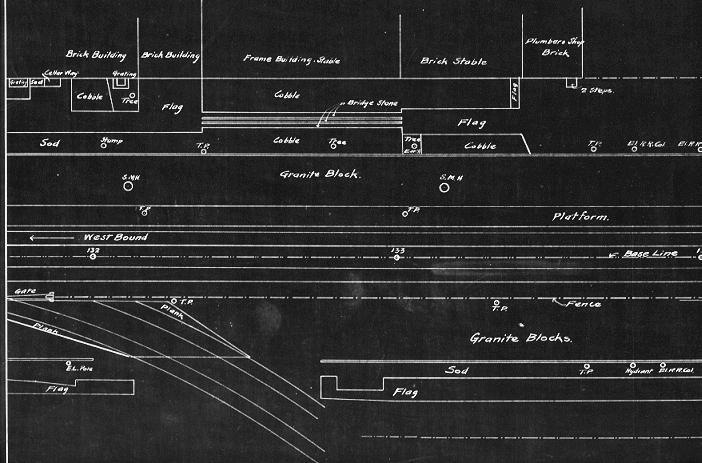 Brick Building
Brick Building
Frame Building. Stable
Brick Stable
Plumbers Shop
Brick
Grating
Sod
Cellar Way
Grating
Cobble
Tree
Flag
Cobble
Bridge Stone
Flag
Flag
2 Steps.
Sod
Stump
T.P.
Cobble
Tree
Tree
Cobble
T.P.
El.R.R.Col.
El.R.R.
Granite Block.
S.M.H
S.M.H
T.P.
T.P.
Platform.
West Bound
132
133
Base Line
Gate
T.P.
Plank
T.P.
Fence
Plank
Granite Blocks.
E.L. Pole
Sod
T.P.
Hydrant
El.R.R.Col.
Flag
Flag